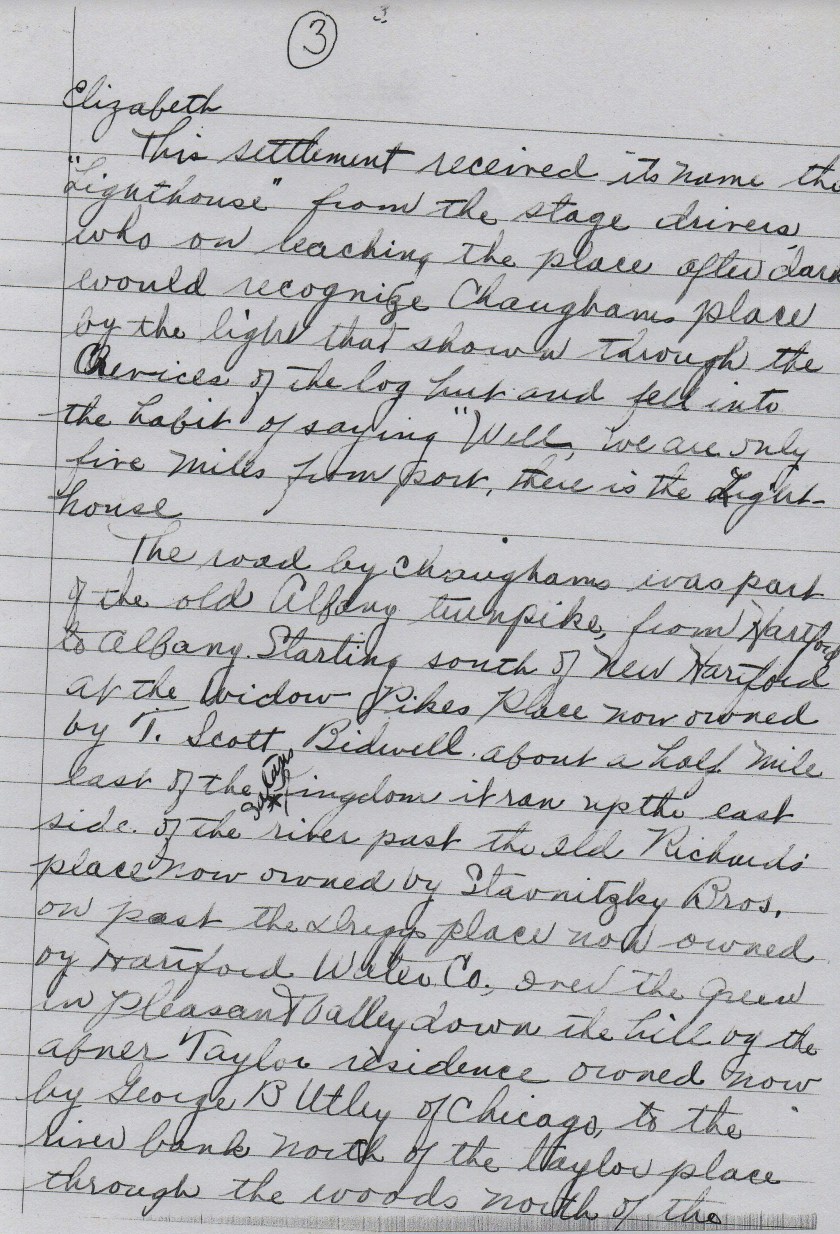 3
3.
Elizabeth
This settlement received its name the
"Lighthouse" from the stage drivers,
who on reaching the place after dark
would recognize Chaughams place
by the light that shown through the
Crevices of the log hut and fell into
the habit of saying "Well, we are only
five miles from port, there is the Light-
house
The road by Chaughams was part
of the old Albany turnpike, from Hartford
to Albany. Starting south of New Hartford
at the widow Pikes Place now owned
by T. Scott Bidwell about a half mile
east of the Kingdom it ran up the east
side of the river past the old Richards
place now owned by Stavnitzky Bros.
on past the place now owned
by Hartford Water Co., over the green
in Pleasant Valley down the hill by the
abner Taylor residence owned now
by George B Utley of Chicago, to the
river bank north of the Taylor place
through the woods north of the